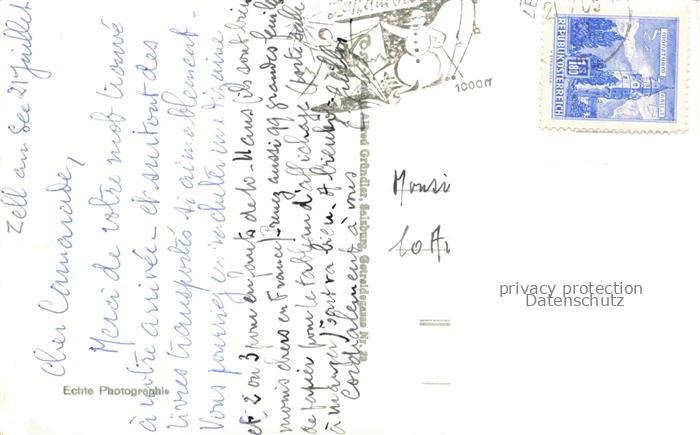 Zell am See 21 juillet
Cher Camarade,
Merci de votre mot trouvé
à notre arrivée - et surtout des
livres transportés si aimablement -
Vous pourriez en racheter une dizaine
et 2 ou 3 pour enfants de 10-11 ans (ils sont bien
moins chers en France) Prenez aussi 99 grandes feuilles
de papier pour le tableau d'affichage (porte salle
à manger) ça ira bien. A bientôt
cordialement à vous
Echte Photographie
Alfred Gründler, Salzburg, Gereidegasse Nr. 22
1000m
REPUBLIK ÖSTERREICH
S 1.80
Monsi
10 Av
privacy protection
Datenschutz